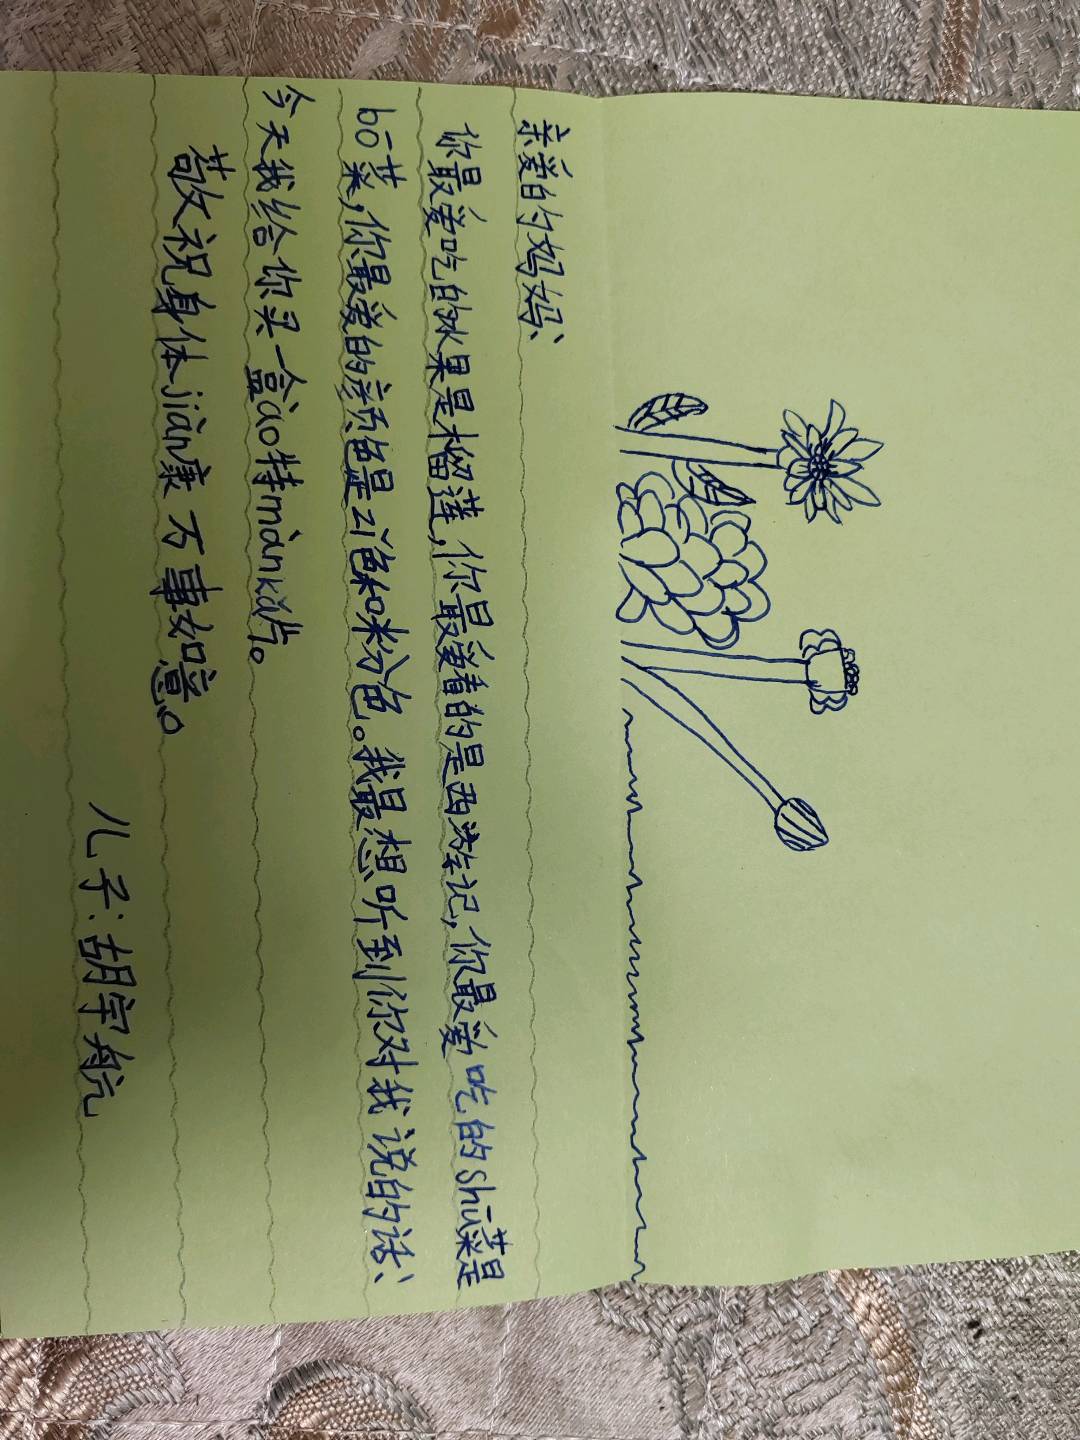 亲爱的妈妈:
你最爱吃的水果是榴莲,你最爱看的是西游记,你最爱吃的shū菜是
bō菜,你最爱的颜色是zǐ色和粉色。我最想听到你对我说的话:
今天我给你买一盒ào特màn kǎ片。
敬祝身体jiàn康 万事如意。
儿子:胡宇航